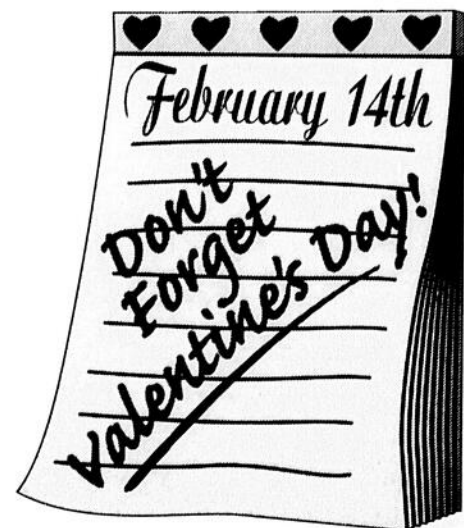 February 14th
Don't
Forget
Valentine's Day!